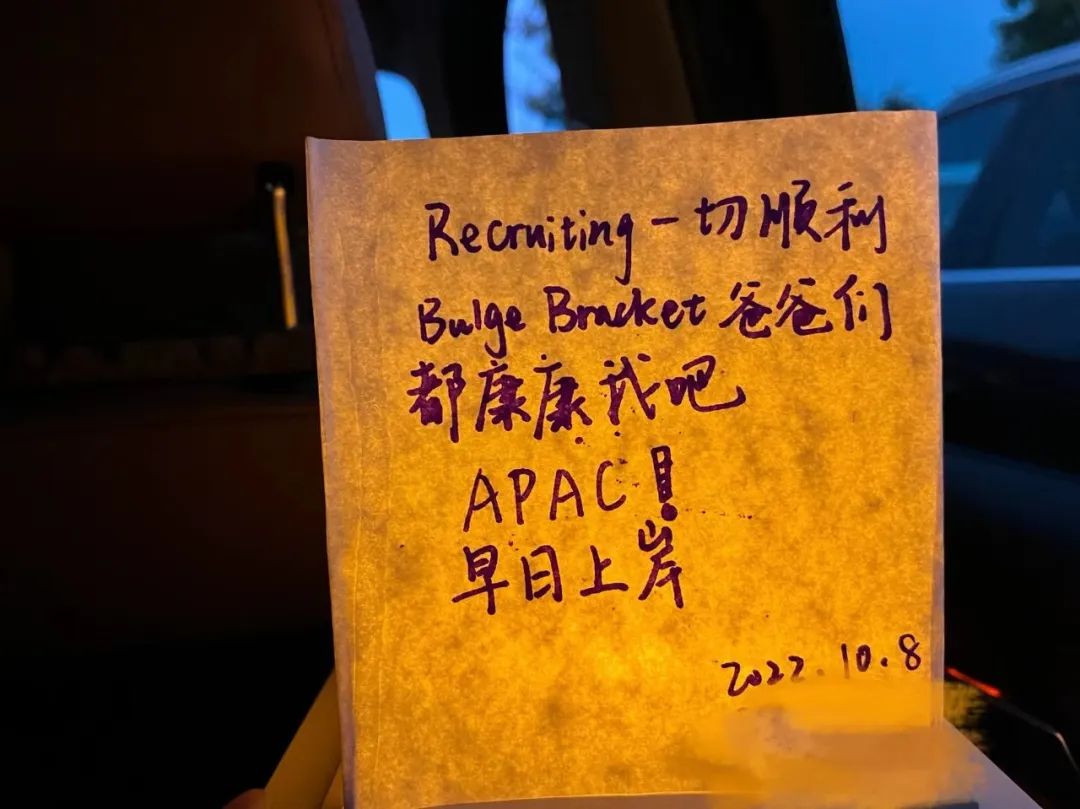 Recruiting 一切顺利
Bulge Bracket 爸爸们
都康康我吧
APAC!
早日上岸
2022.10.8